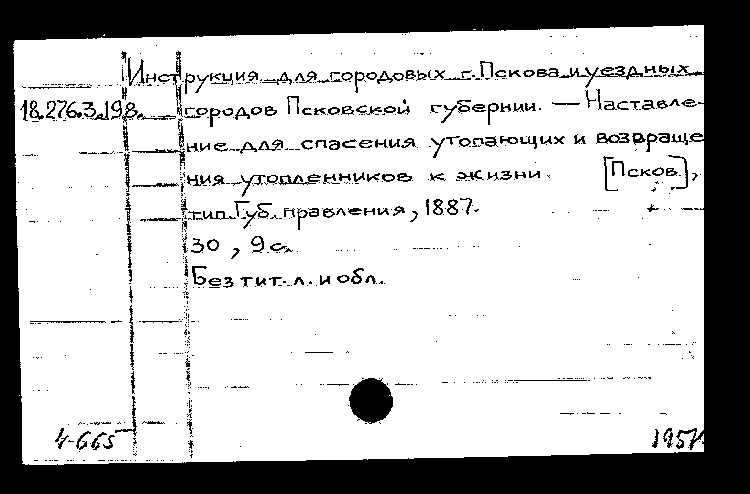 Инструкция для городовых г. Пскова и уездных
18.276.3.198. городов Псковской губернии. — Наставле-
ние для спасения утопающих и возвраще
ния утопленников к жизни. [Псков],
тип. Губ. правления, 1887.
30, 9 с.
Без тит. л. и обл.
4-665 1957